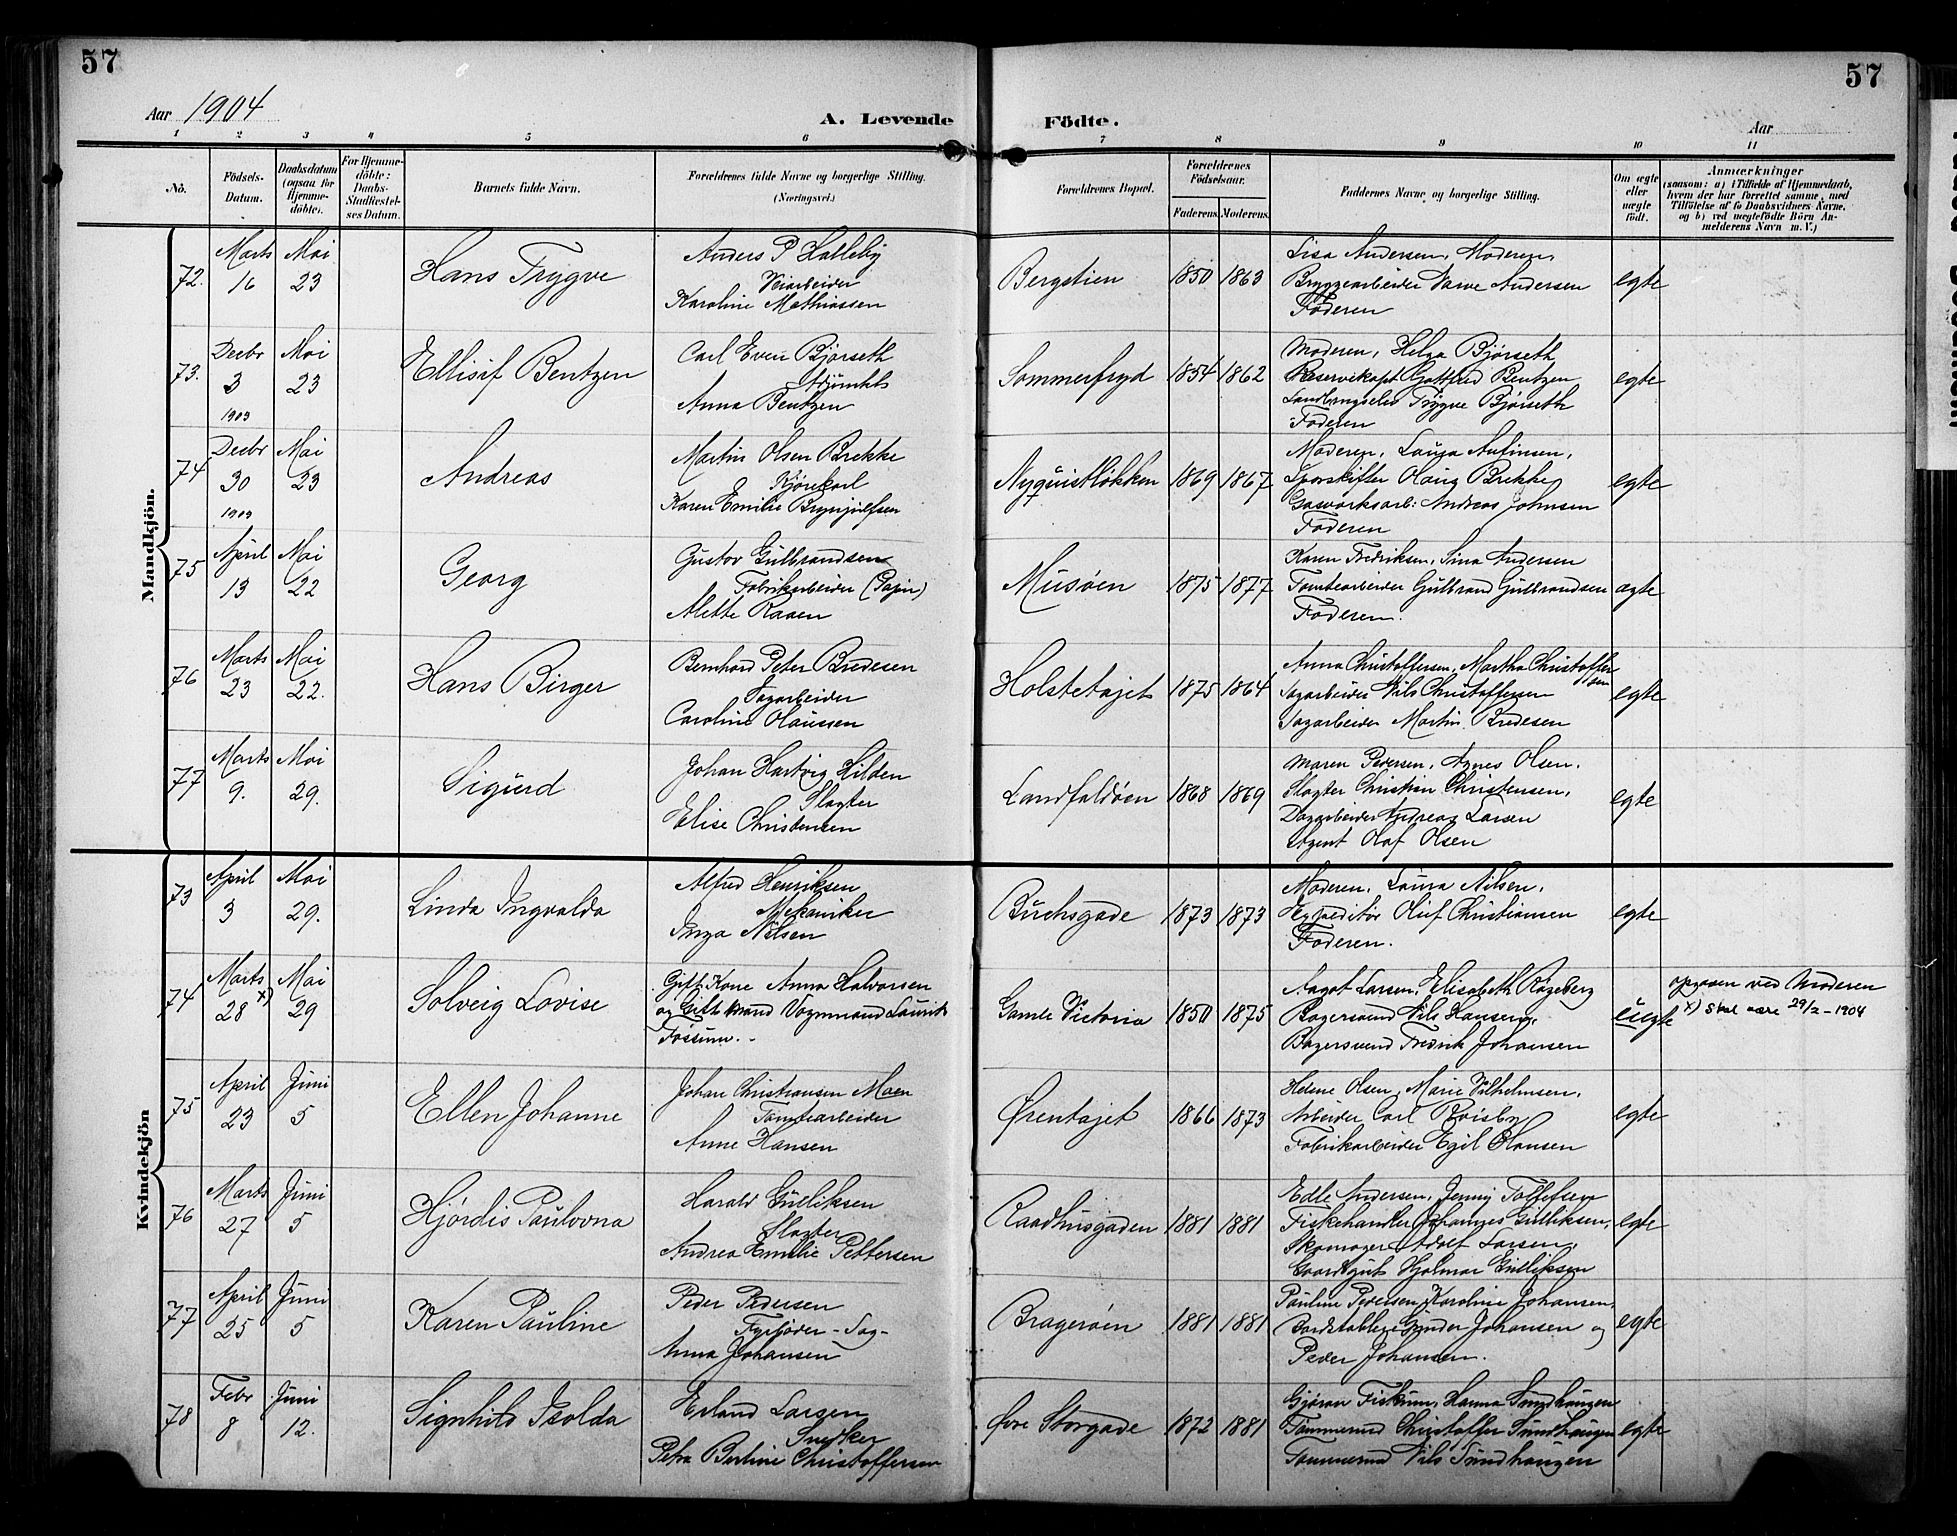 57
57
Aar 1904
A. Levende
Födte.
Aar
1 2 3 4 5 6 7 8 9 10 11
No.
Födsels-Datum.
Daabsdatum (ogsaa for Hjemme-döbte).
For Hjemme-döbte: Daabs-Stadfæstel-ses Datum.
Barnets fulde Navn.
Forældrenes fulde Navne og borgerlige Stilling.
(Næringsvei.)
Forældrenes Bopæl.
Forældrenes Födselsaar.
Faderens. Moderens.
Faddernes Navne og borgerlige Stilling.
Om ægte eller uægte födt.
Anmærkninger
(saasom: a) i Tilfælde af Hjemmedaab,
hvem der har forrettet samme, med
Tilföielse af to Daabsvidners Navne.
og b) ved uægtefödte Börn An-
melderens Navn m. V.)
Mandkjön.
72. Marts 16 Mai 23 Hans Trygve
Anders P Halleby
Veiarbeider
Karoline Mathiassen
Bergstien 1850 1863
Lisa Andersen, Moderen,
Bryggearbeider Andersen
Faderen
egte
73. Decbr 3 1903 Mai 23 Ellisif Bentzen
Carl Even Bjørseth
Anna Bentzen
Sommerfryd 1854 1862
Moderen, Helga Bjørseth
Gottfred Bentzen
Trygve Bjørseth
Faderen
egte
74 Decbr 30 1903 Mai 23 Andreas
Martin Olsen Brekke
Kjørekarl
Karen Emilie Brynjulfsen
Nyquistløkken 1869 1867
Moderen, Laura
Sporskifter Olaus Brekke
Gasværksarb: Andreas Johnsen
Faderen
egte
75 April 13 Mai 22 Georg
Gustav Gulbrandsen
Fabrikarbeider (Papir)
Alette Raaen
Musøen 1875 1877
Karen Fredriksen, Sina Andersen
Tomtearbeider Gulbrand Gulbrandsen
Faderen.
ægte
76 Marts 23 Mai 22. Hans Birger
Bernhard Peter Bredesen
Sagarbeider
Caroline Olaussen
Holstetajet 1875 1864
Anna Christoffersen, Martha Christoffersen
Sagarbeider Nils Christoffersen
Sagarbeider Martin Bredesen
egte
77 Marts 9. Mai 29. Sigurd
Johan Hartvig Hilden
Slagter
Elise Christensen
Landfaldøen 1868 1869
Maren Pedersen, Agnes Olsen,
Slagter Christian Christensen,
Dagarbeider Andreas Larsen
Agent Olaf Olsen
egte
Kvindekjön
73 April 3 Mai 29. Linda Ingvalda
Alfred Henriksen
Mekaniker
Inga Nilsen
Buchsgade 1873 1873
Moderen, Laura Nilsen,
Expeditør Oluf Christiansen
Faderen.
egte
74 Marts 28 x) Mai 29 Solveig Lovise
Gift Kone Anna Halvorsen
og Gift Mand Vognmand Laurits
Fossum.
Gamle Victoria 1850 1875
Aagot Larsen, Elisabeth Rogeberg
Bagersvend Nils Hansen,
Bagersvend Fredrik Johansen
uegte
opgaven ved Moderen
x) Skal være 29/2 - 1904
75 April 23 Juni 5 Ellen Johanne
Johan Christiansen Moen
Tomtearbeider
Anne Hansen
Ørentajet 1866 1873
Helene Olsen, Marie Vilhelmsen,
Arbeider Carl
Fabrikarbeider Egil Hansen
egte
76 Marts 27 Juni 5 Hjørdis Paulovna
Harald Gulliksen
Slagter
Andrea Emilie Pettersen
Raadhusgaden 1881 1881
Edle Andersen, Jenny Tollefsen
Fiskehandler Johannes Gulliksen,
Skomager Adolf Larsen,
Gaardsgut Hjalmar Gulliksen
egte
77 April 25 Juni 5 Karen Pauline
Peder Pedersen
Fyrbøder - Sag-
Anna Johansen
Bragerøen 1881 1881
Pauline Pedersen, Karoline Johansen,
Gunder Johansen og
Peder Johansen.
egte
78 Febr 8 Juni 12. Signhild Isolda
Erland Larsen
Snedker
Petra Bertine Christoffersen
Øvre Storgade 1872 1881
Gjøran Fiskum, Hanna Sundhaugen
Tømmermd Christoffer Sundhaugen
Tømmermd Nils Sundhaugen
egte